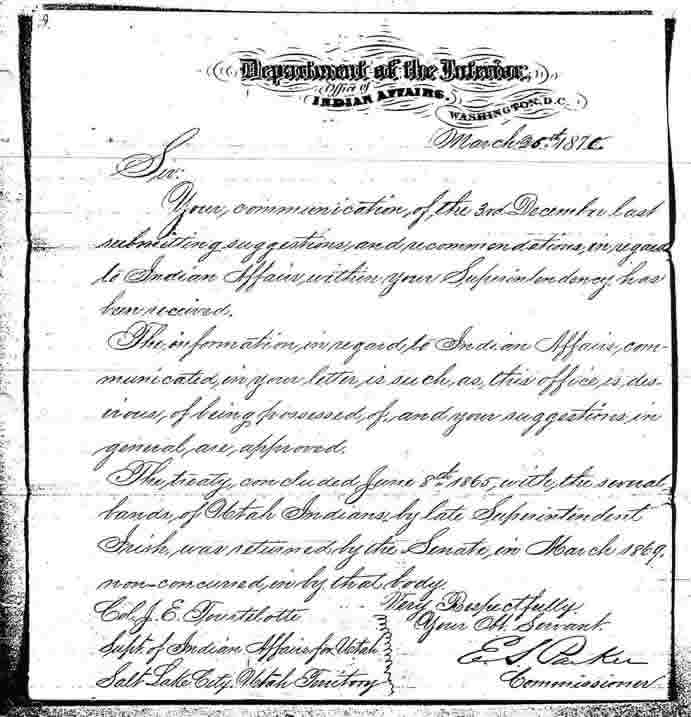 9.
Department of the Interior,
Office of
INDIAN AFFAIRS.
WASHINGTON, D.C.
March 25th 1870.
Sir:
Your communication, of the 3rd December last
submitting suggestions, and recommendations, in regard
to Indian Affairs, within your Superintendency, has
been received.
The information, in regard, to Indian Affairs, com-
municated, in your letter, is such, as, this office, is, des-
irous, of being possessed, of, and your suggestions, in
general, are, approved.
The treaty, concluded June 8th 1865, with, the several
bands, of Utah Indians, by late Superintendent
Irish, was returned by the Senate, in March 1869,
non-concurred, in by that body.
Very Respectfully
Your Obt Servant.
E. S. Parker
Commissioner
Col. J. E. Tourtelotte
Supt. of Indian Affairs for Utah
Salt Lake City. Utah Territory